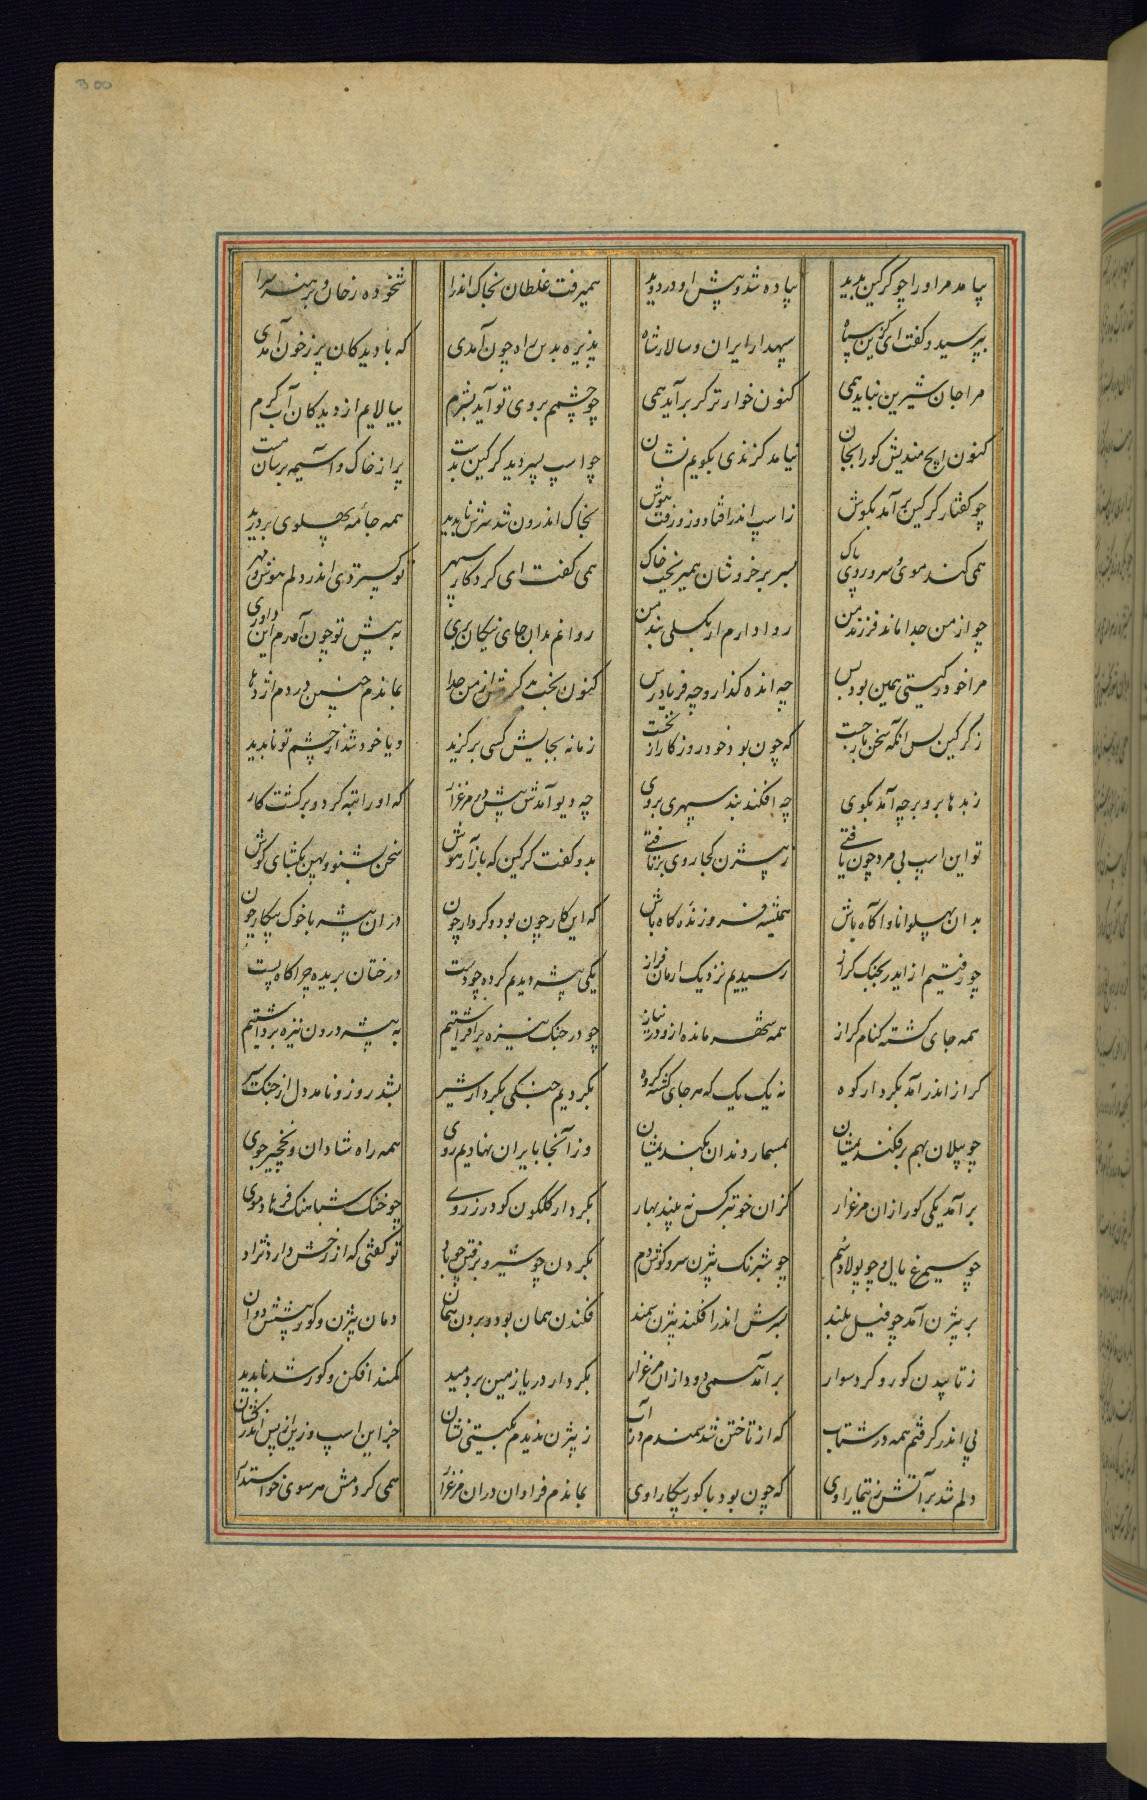 300
بیامد مر او را چو گرگین بدید پیاده شد و پیش او در دوید همیرفت غلطان بخاک اندرا شخوده رخان و برهنه سرا
بپرسید و گفت ای گزین سپاه سپهدار ایران و سالار شاه پذیره بدین راه چون آمدی که با دیدگان پر ز خون آمدی
مرا جان شیرین نباید همی کنون خوارتر گر برآید همی چو چشمم بروی تو آید بشرم بپالایم از دیدگان آب گرم
کنون ایچ مندیش کو را بجان نیامد گزندی بگویم نشان چو اسپ پسر دید گرگین بدست پر از خاک و آسیمه برسان مست
چو گفتار گرگین برآمد بگوش ز اسپ اندر افتاد و زو رفت هوش بخاک اندرون شد سرش ناپدید همه جامه پهلوی بردرید
همی کند موی سر و روی پاک بسر بر خروشان همیریخت خاک همی گفت ای کردگار سپهر تو گستردی اندر دلم هوش و مهر
چو از من جدا ماند فرزند من روا دارم ار بگسلی بند من روانم بدان جای نیکان بری به پیش تو چون آمدم این داوری
مرا خود ز گیتی همین بود بس چه انده گسار و چه فریادرس کنون بخت بد کردش از من جدا بماندم چنین در دم اژدها
ز گرگین پس آنگه سخن بازجست که چون بود خود روزگار از نخست زمانه بجایش کسی برگزید و یا خود شد از چشم تو ناپدید
ز بدها برو بر چه آمد بگوی چه افکند بند سپهری بروی چه دیو آمدش پیش در مرغزار که او را تبه کرد و برگشت کار
تو این اسپ بی مرد چون یافتی ز بیژن کجا روی برتافتی بدو گفت گرگین که بازآر هوش سخن بشنو و پهن بگشای گوش
بدان پهلوانا و آگاه باش همیشه فروزنده گاه باش که این کار چون بود و کردار چون دران بیشه با خوک پیکار چون
چو رفتیم از ایدر بجنگ گراز رسیدیم نزدیک ارمان فراز یکی بیشه دیدیم کرده چو دست درختان بریده چراگاه پست
همه جای گشته کنام گراز همه مانده ازو در نیاز چو در جنگ نیزه برافراشتیم به بیشه درون نیزه برداشتیم
گراز اندر آمد بکردار کوه نه یک یک که هر جای گشته گروه بکردیم جنگی بکردار شیر بشد روز و نامد دل از جنگ سیر
چو پیلان بهم برفکندیمشان بمسمار دندان بکندیمشان وز آنجا بایران نهادیم روی همه راه شادان و نخچیر جوی
برآمد یکی گور ازان مرغزار کزان خوبتر کس نه بیند بهار بکردار گلگون گودرز روی چو خنگ شباهنگ فرهاد موی
چو سیمرغ یال و چو پولاد سم چو شبرنگ بیژن سر و گوش و دم بگردن چو شیر و برفتن چو باد تو گفتی که از رخش دارد نژاد
بر بیژن آمد چو فیل بلند بسرش اندر افکند بیژن سمند فکندن همان بود و بردن همان دمان بیژن و گور پیشش دوان
ز تازیدن گور و گرد سوار برآمد همی دود ازان مرغزار بکردار دریا زمین بردمید کمند افکن و گور شد ناپدید
پی اندر گرفتم همه در شتاب که از تاختن شد سمندم در آب ز بیژن ندیدم بگیتی نشان جز این اسپ و زین از پس اندر کشان
دلم شد بر آتش ز تیمار اوی که چون بود با گور پیکار اوی بماندم فراوان دران مرغزار همی کردمش هر سوی خواستار